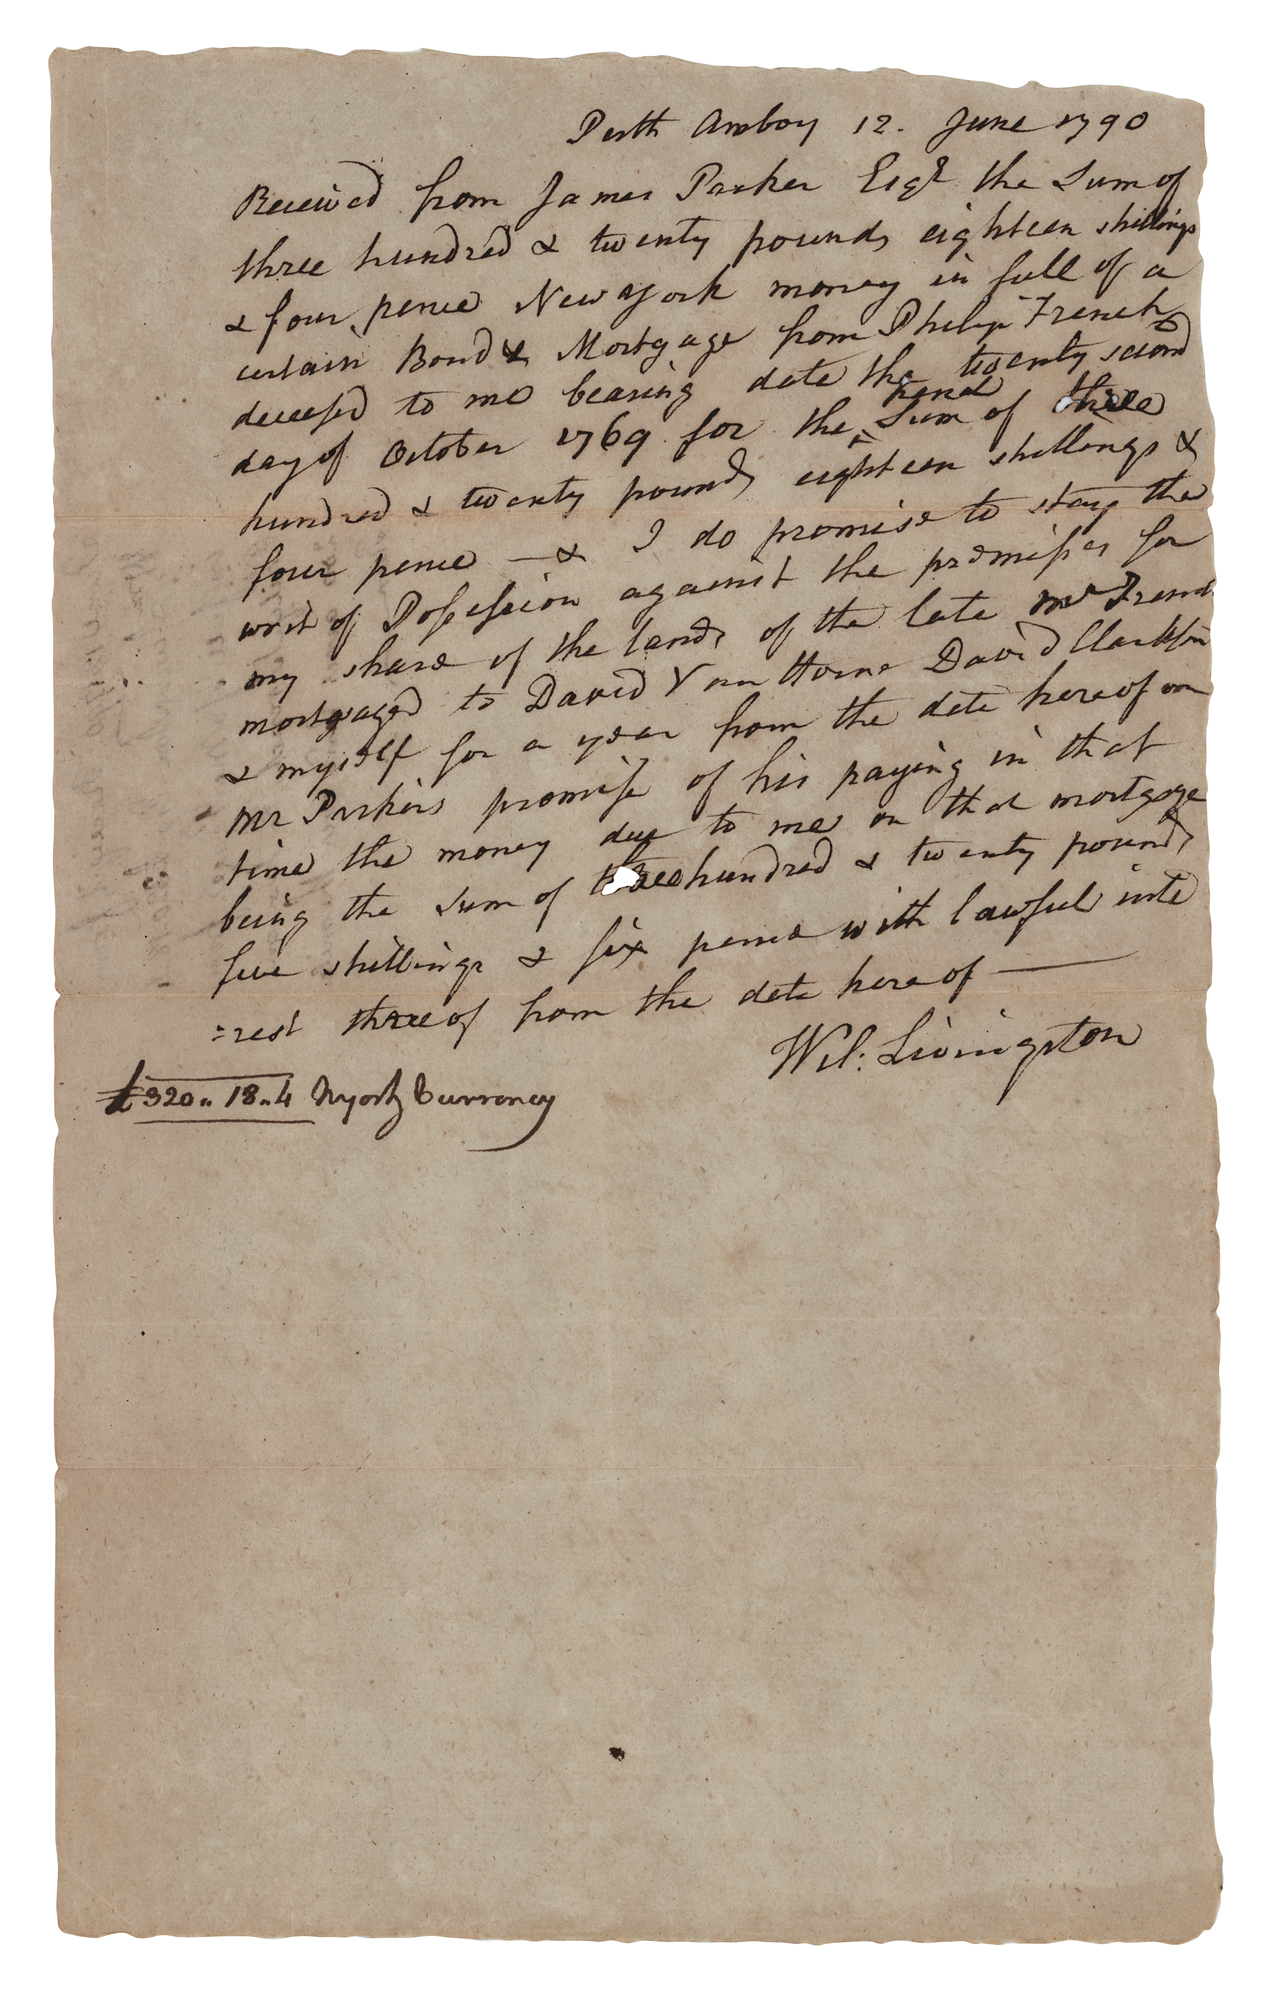 Perth Amboy 12. June 1790
Received from James Parker Esqr the Sum of
three hundred & twenty pounds eighteen shillings
& four pence New york money in full of a
certain Bond & Mortgage from Philip French
deceased to me bearing date the twenty second
day of October 1769 for the penal Sum of three
hundred & twenty pounds eighteen shillings &
four pence — & I do promise to stay the
writ of Possession against the premises for
my share of the lands of the late Mr French
mortgaged to David Van Horne David Clarkson
& myself for a year from the date hereof on
Mr Parkers promise of his paying in that
time the money due to me on that mortgage
being the Sum of three hundred & twenty pounds
five shillings & six pence with lawful inte
=rest thereof from the date hereof —
Wil: Livingston
£320,, 18,, 4 Nyork Currency